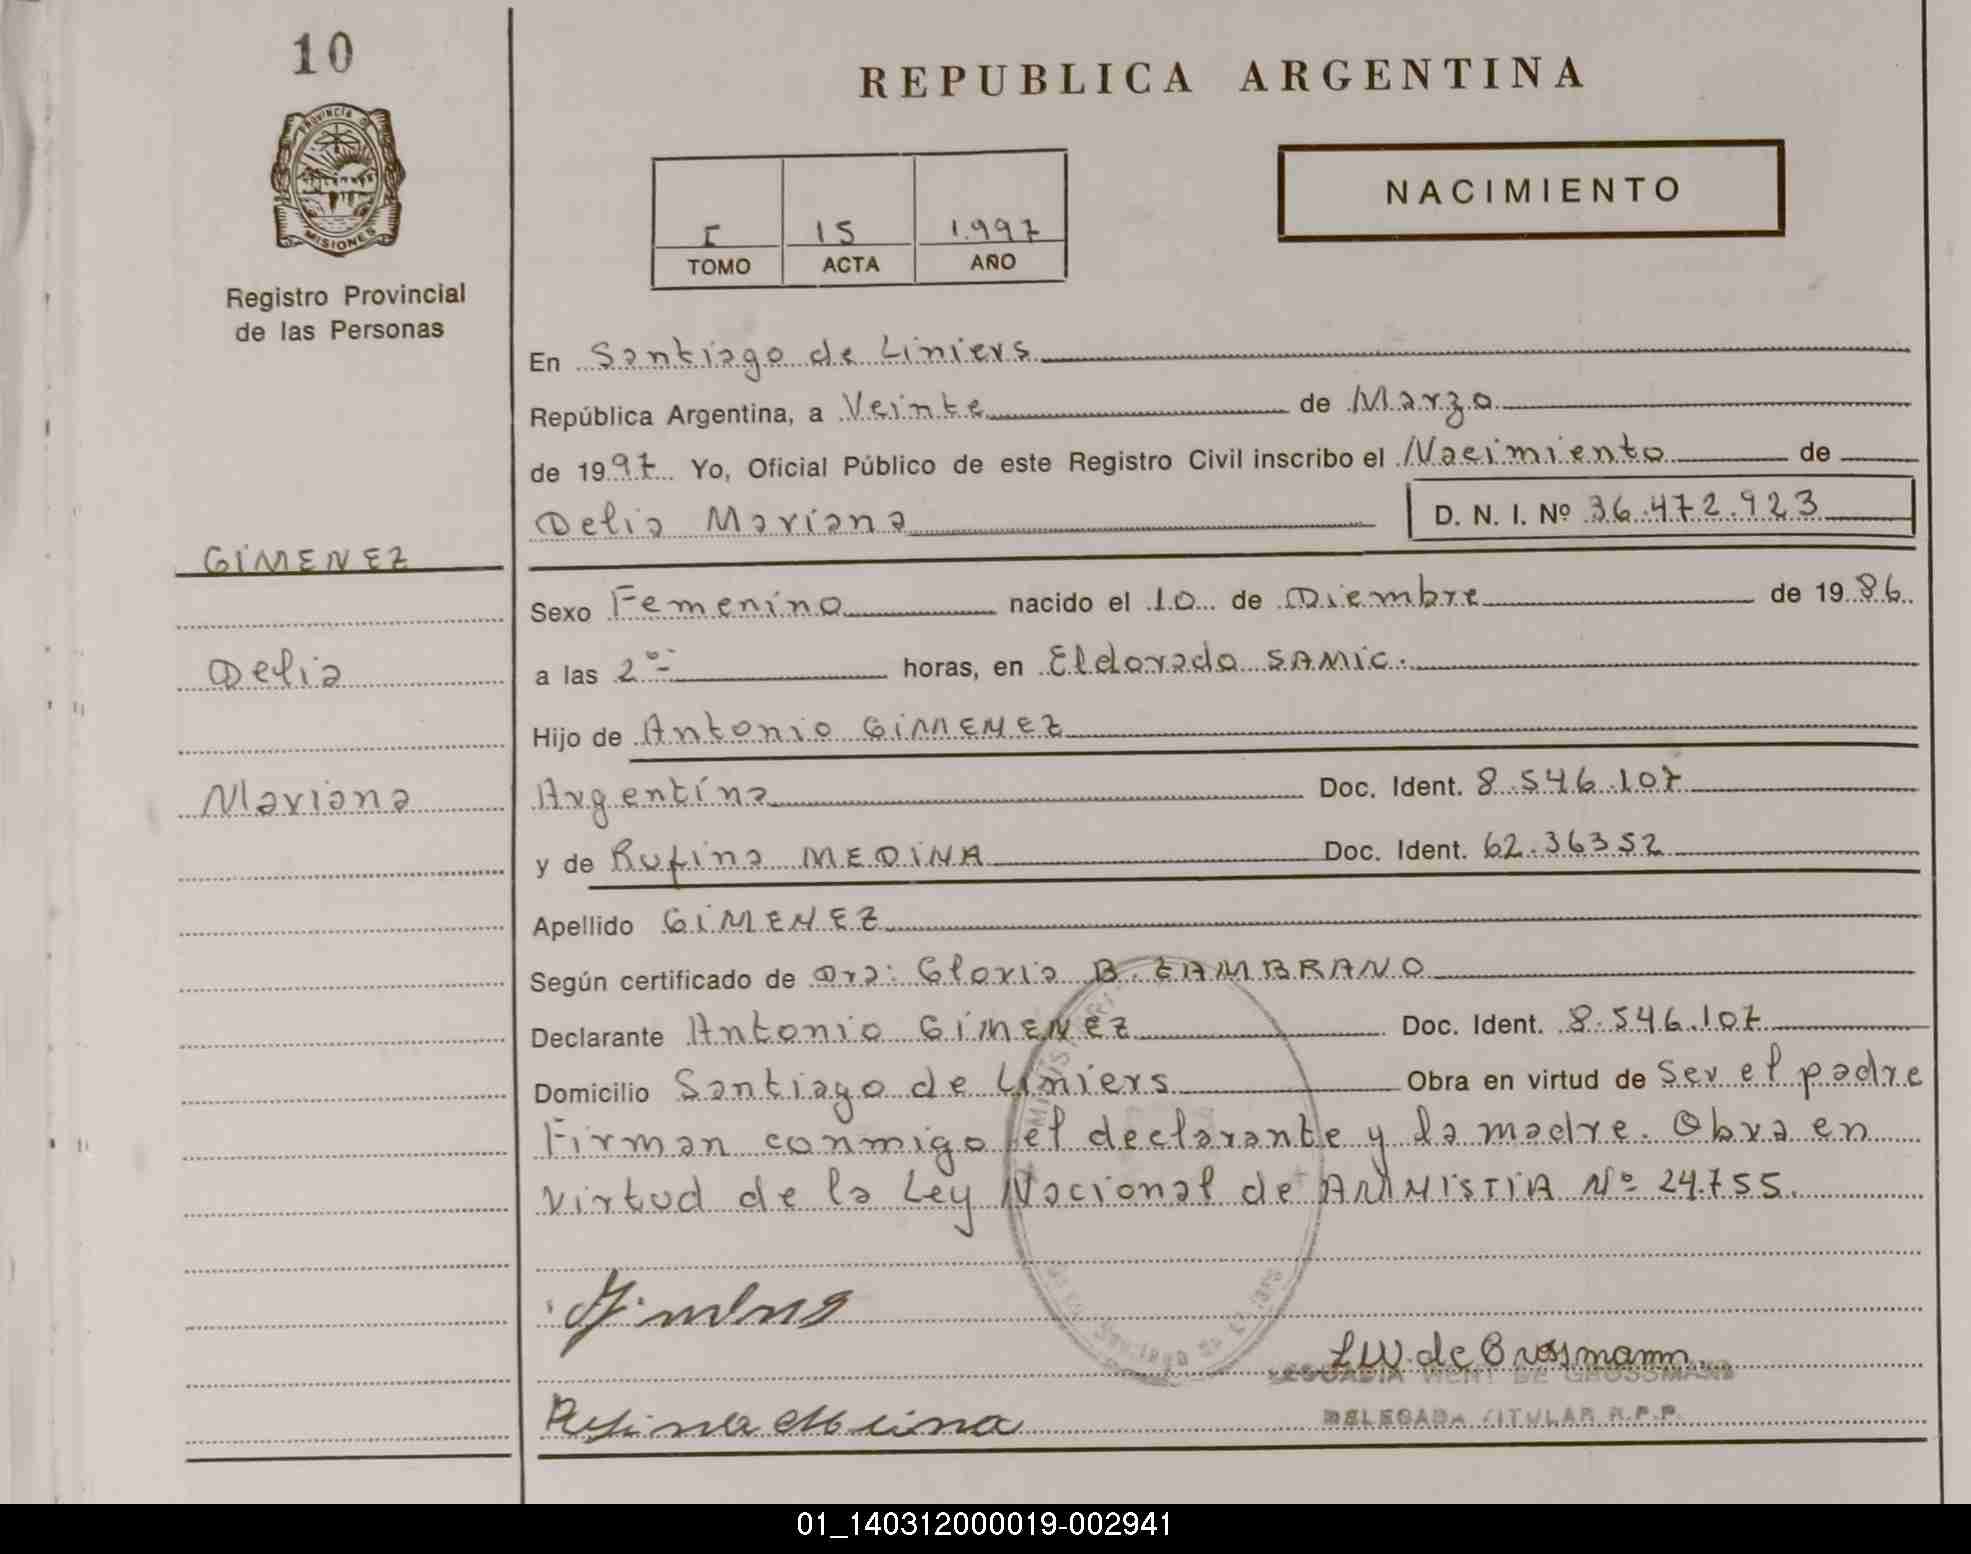 10
PROVINCIA DE
MISIONES
Registro Provincial
de las Personas
GIMENEZ
Delia
Mariana
REPUBLICA ARGENTINA
NACIMIENTO
I 15 1.997
TOMO ACTA AÑO
En Santiago de Liniers
República Argentina, a Veinte de Marzo
de 1997 Yo, Oficial Público de este Registro Civil inscribo el Nacimiento de
Delia Mariana D. N. I. Nº 36.472.923
Sexo Femenino nacido el 10 de Diciembre de 1986
a las 2 horas, en Eldorado SAMIC.
Hijo de Antonio GIMENEZ
Argentina Doc. Ident. 8.546.107
y de Rufina MEDINA Doc. Ident. 62.36352
Apellido GIMENEZ
Según certificado de Dra: Gloria B. ZAMBRANO
Declarante Antonio GIMENEZ Doc. Ident. 8.546.107
Domicilio Santiago de Liniers Obra en virtud de Ser el padre
Firman conmigo el declarante y la madre. Obra en
virtud de la Ley Nacional de AMNISTIA Nº 24.755.
L W. de Grossmann
DE GROSSMANN
Rufina
DELEGADA TITULAR R.P.P.
01_140312000019-002941